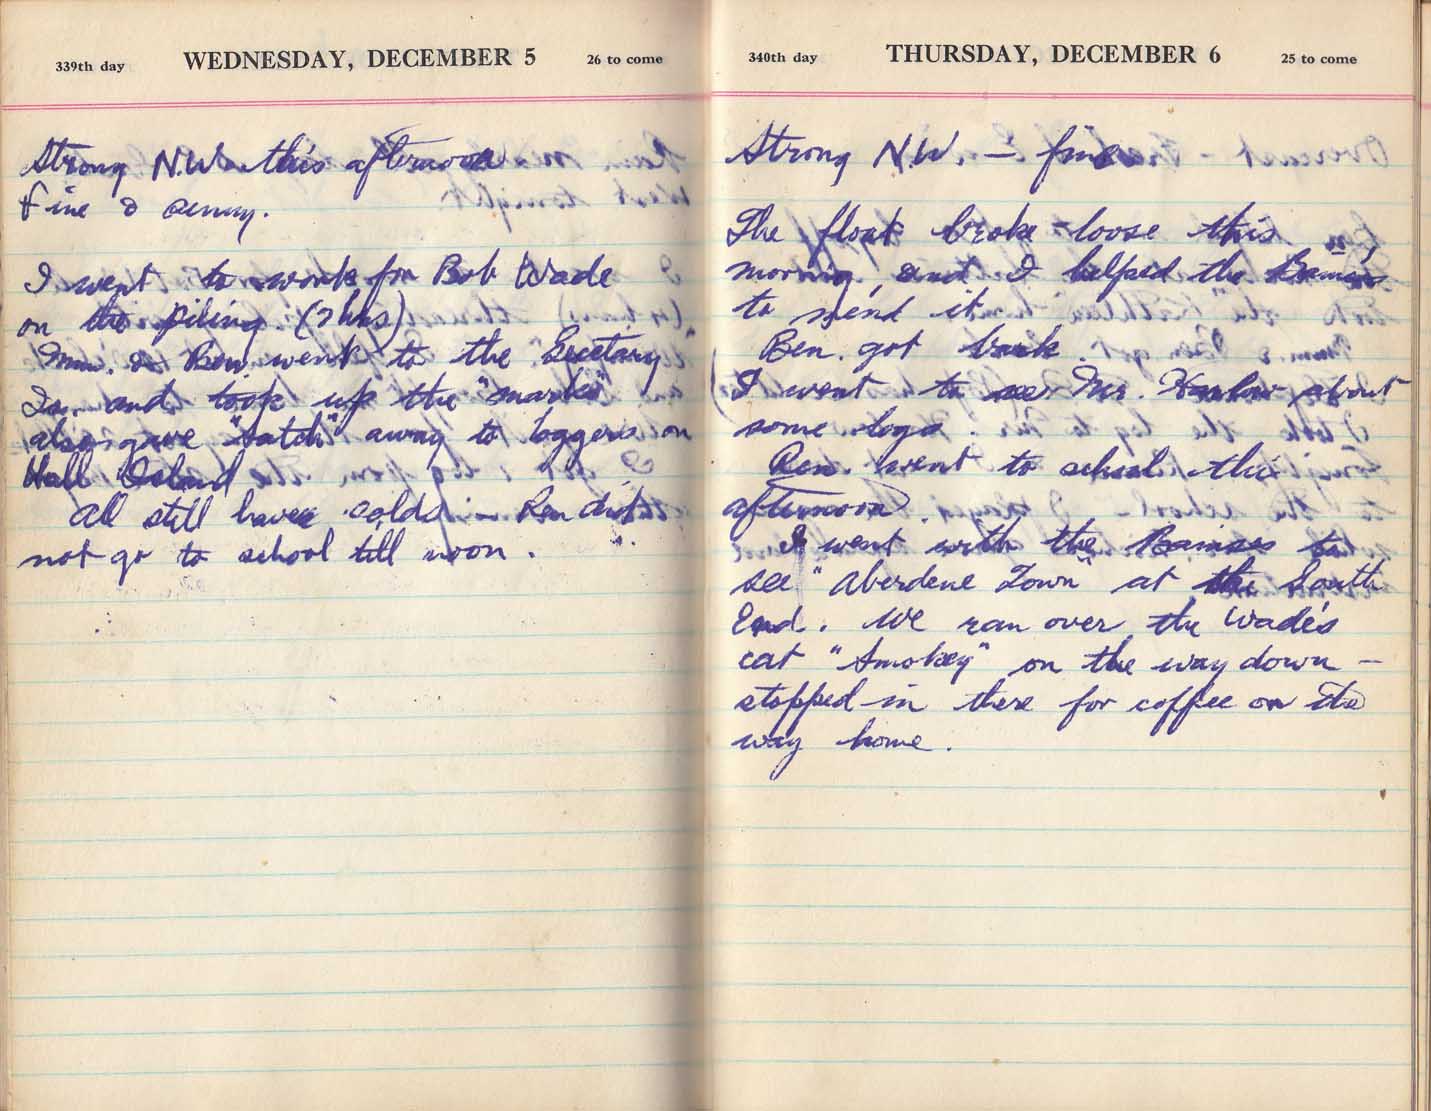 339th day WEDNESDAY, DECEMBER 5 26 to come
Strong N.W. this afternoon
Fine & sunny.
I went to work for Bob Wade
on the piling. (2 hrs)
Mum. & Ben went to the "Secetary
Is. and took up the "marks"
also gave "Satch" away to loggers on
Hall Island
All still have colds - Ren did
not go to school till noon.
340th day THURSDAY, DECEMBER 6 25 to come
Strong N.W. - fine
The float broke loose this
morning, and I helped the
to mend it.
Ben. got back.
I went to see Mr. about
some logs.
Ren. went to school this
afternoon.
I went with the to
see "Aberdene Town" at the South
End. We ran over the Wade's
cat "Smokey" on the way down -
stopped in there for coffee on the
way home.